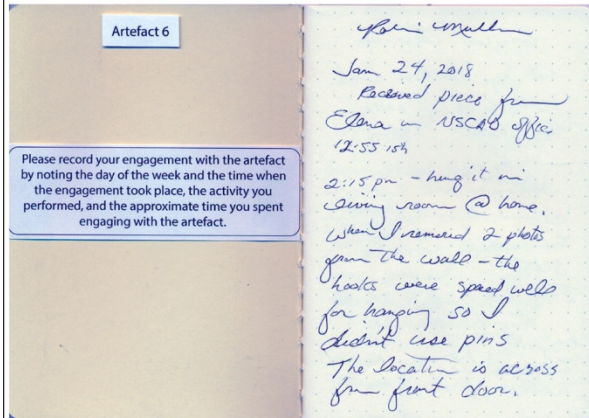 Artefact 6
Please record your engagement with the artefact
by noting the day of the week and the time when
the engagement took place, the activity you
performed, and the approximate time you spent
engaging with the artefact.
Jan 24, 2018
Received piece from
Elena in NSCAD office
12:55 ish
2:15 pm - hung it in
living room @ home.
when I removed 2 photos
from the wall - the
hooks were spaced well
for hanging so I
didn't use pins
The location is across
from front door.